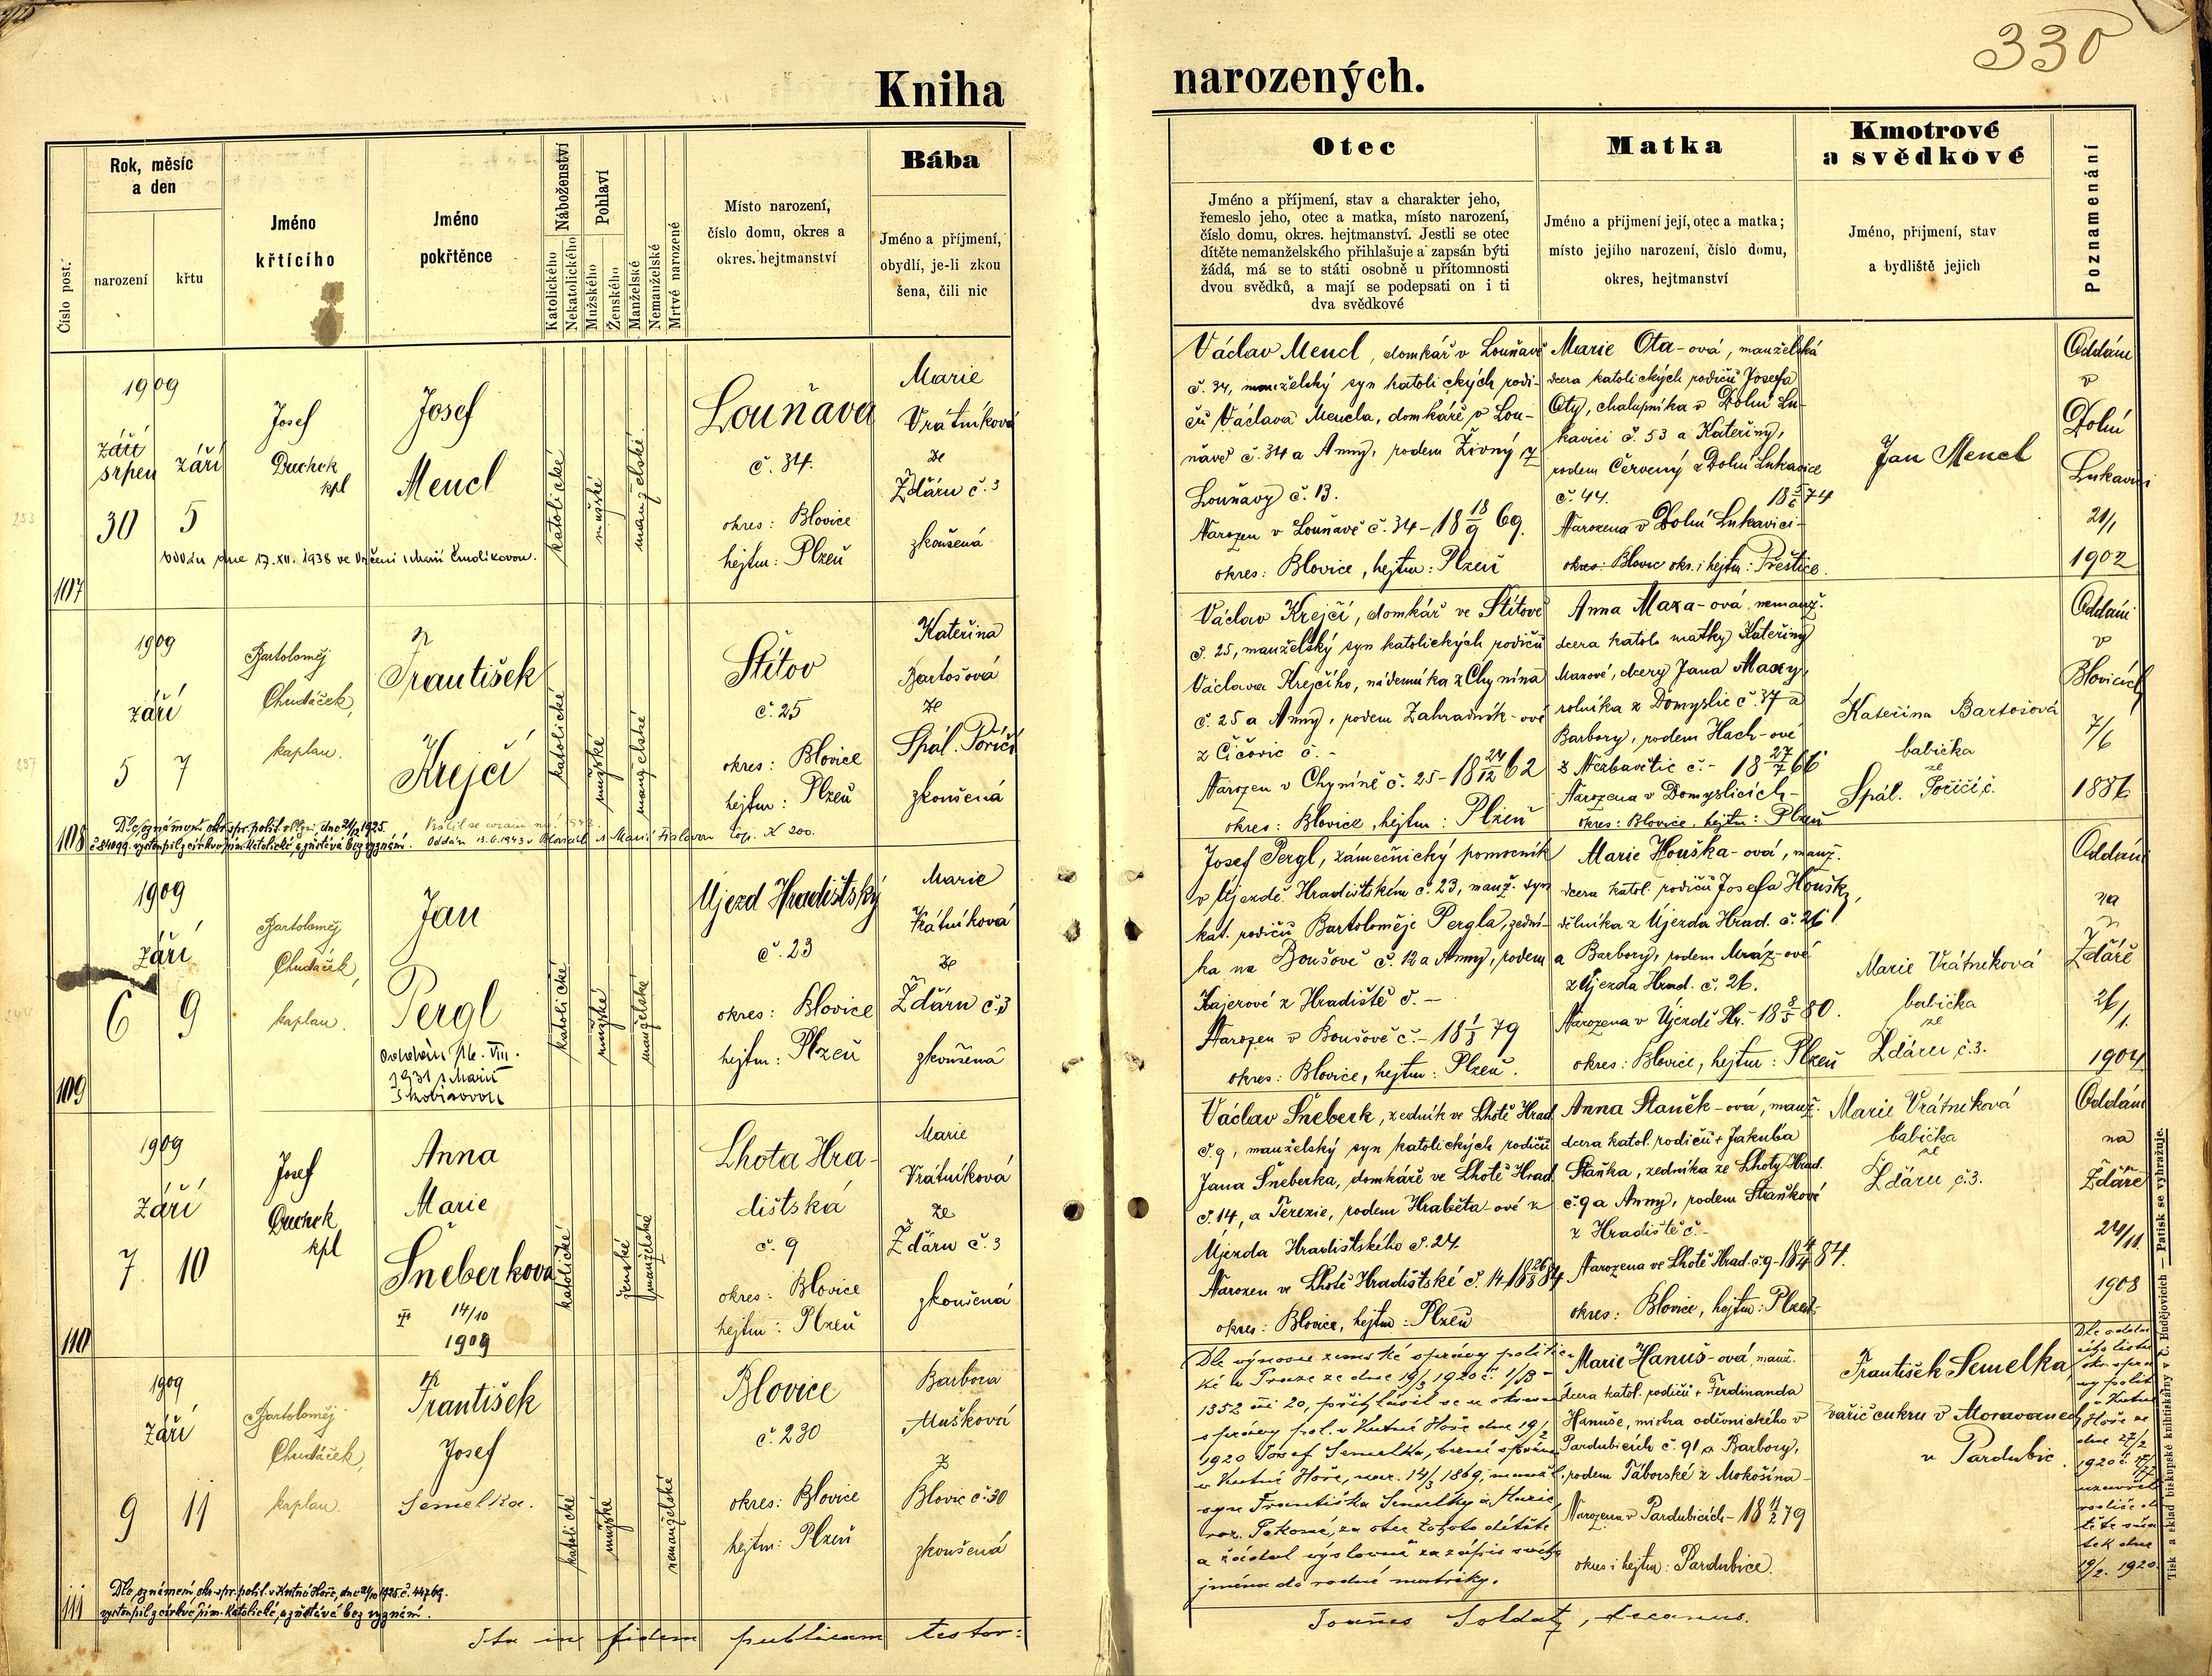 330
Kniha narozených.
Číslo post.
Rok, měsíc
a den
narození
křtu
Jméno
křtícího
Jméno
pokřtěnce
Náboženství
Katolického
Nekatolického
Pohlaví
Mužského
Ženského
Manželské
Nemanželské
Mrtvé narozené
Místo narození,
číslo domu, okres a
okres. hejtmanství
Bába
Jméno a příjmení,
obydlí, je-li zkou
šena, čili nic
Otec
Jméno a příjmení, stav a charakter jeho,
řemeslo jeho, otec a matka, místo narození,
číslo domu, okres. hejtmanství. Jestli se otec
dítěte nemanželského přihlašuje a zapsán býti
žádá, má se to státi osobně u přítomnosti
dvou svědků, a mají se podepsati on i ti
dva svědkové
Matka
Jméno a příjmení její, otec a matka;
místo jejího narození, číslo domu,
okres, hejtmanství
Kmotrové
a svědkové
Jméno, příjmení, stav
a bydliště jejich
Poznamenání
107
1909
září
srpen
30
září
5
Josef
Duchek
kpl
Josef
Mencl
katolické
mužské
manželské
Louňava
č. 34.
okres: Blovice
hejtm: Plzeň
Marie
Vrátníková
ze
Ždáru č. 3
zkoušená
Oddán dne 17. XII. 1938 ve Vrčeni s Marií Čmolíkovou.
Václav Mencl, domkář v Louňavě
č. 34, manželský syn katolických rodi-
čů Václava Mencla, domkáře v Lou-
ňavě č. 34 a Anny, rodem Živný z
Louňavy č. 13.
Narozen v Louňavě č. 34 - 18 18/9 69.
okres: Blovice, hejtm: Plzeň
Marie Ota-ová, manželská
dcera katolických rodičů Josefa
Oty, chalupníka v Dolní Lu-
kavici č. 53 a Kateřiny,
rodem Červený z Dolní Lukavice
č. 44.
Narozena v Dolní Lukavici-
okres: Blovic okr. i hejtm: Přeštice.
Jan Mencl
Oddáni
v
Dolní
Lukavici
21/1
1902
108
1909
září
5
7
Bartoloměj
Chudáček,
kaplan.
František
Krejčí
katolické
mužské
manželské
Štítov
č. 25
okres: Blovice
hejtm: Plzeň
Kateřina
Bartošová
ze
Spál. Poříčí
zkoušená
Dle oznámení okr. spr. polit. v Plzni, dne 21/12 1925.
č. 84099. vystoupil z církve řím. katolické, a zůstává bez vyznání.
Oddán 13.6.1943 v Blovicích s Marií
Václav Krejčí, domkář ve Štítově
č. 25, manželský syn katolických rodičů
Václava Krejčího, nádeníka z Chynína
č. 25 a Anny, rodem Zahradník-ové
z Číčovic č. -
Narozen v Chyníně č. 25 - 18 24/12 62
okres: Blovice, hejtm: Plzeň
Anna Maxa-ová nemanž.
dcera katol. matky Kateřiny
Maxové, dcery Jana Maxy,
rolníka z Domyslic č. 37 a
Barbory, rodem Hach-ové
z Nezbavětic č. - 18 27/7 66
Narozena v Domyslicích-
okres: Blovice, hejtm: Plzeň
Kateřina Bartošová
babička
ze
Spál. Poříčí č.
Oddáni
v
Blovicích
7/6
1886
109
1909
září
6
9
Bartoloměj
Chudáček,
kaplan.
Jan
Pergl
Oddán 16. VIII.
1931 s Marií
katolické
mužské
manželské
Újezd Hradištský
č. 23
okres: Blovice
hejtm: Plzeň
Marie
Vrátníková
ze
Ždáru č. 3
zkoušená
Josef Pergl, zámečnický pomocník
v Újezdě Hradištském č. 23, manž. syn
kat. rodičů Bartoloměje Pergla, zední-
ka na Boušově č. 12 a Anny, rodem
Kajerové z Hradiště č. -
Narozen v Boušově č. - 18 1/3 79
okres: Blovice, hejtm: Plzeň.
Marie Houška-ová, manž.
dcera katol. rodičů Josefa Houšky,
dělníka z Újezda Hrad. č. 26
a Barbory, rodem Mráz-ové
z Újezda Hrad. č. 26.
Narozena v Újezdě Hr. 18 80.
okres: Blovice, hejtm: Plzeň
Marie Vrátníková
babička
ze
Ždáru č. 3.
Oddáni
na
Ždáře
26/1.
1904
110
1909
září
7.
10
Josef
Duchek
kpl
Anna
Marie
Šneberková
14/10
1909
katolické
ženské
manželské
Lhota Hra-
dištská
č. 9
okres: Blovice
hejtm: Plzeň
Marie
Vrátníková
ze
Ždáru č. 3
zkoušená
Václav Šneberk, zedník ve Lhotě Hrad.
č. 9, manželský syn katolických rodičů
Jana Šneberka, domkáře ve Lhotě Hrad.
č. 14, a Terezie, rodem Hraběta-ové z
Újezda Hradištského č. 24.
Narozen ve Lhotě Hradištské č. 14 - 18 26/8 84
okres: Blovice, hejtm: Plzeň
Anna Staněk-ová, manž.
dcera katol. rodičů + Jakuba
Staňka, zedníka ze Lhoty Hrad.
č. 9 a Anny, rodem Straňkové
z Hradiště č. -
Narozena ve Lhotě Hrad. č. 9 - 18 4/4 84.
okres: Blovice, hejtm: Plzeň
Marie Vrátníková
babička
ze
Ždáru č. 3.
Oddáni
na
Ždáře
24/11.
1908
111
1909
září
9
11
Bartoloměj
Chudáček,
kaplan.
František
Josef
Semelka.
katolické
mužské
nemanželské
Blovice
č. 230
okres: Blovice
hejtm: Plzeň
Barbora
Mušková
z
Blovic č. 30
zkoušená
Dle oznámení okr. spr. polit. v Kutné Hoře, dne 2/10 1925 č. 44769.
vystoupil z církve řím. katolické, a zůstává bez vyznání.
Dle výnosu zemské správy politic-
ké v Praze ze dne 19/3 1920 č. 1/B -
1352 20, přihlásil se u okresní
správy pol. v Kutné Hoře dne 19/2
1920 Josef Semelka, berní správce
v Kutné Hoře, nar. 14/3 1869, manžel.
syn Františka Semelky a Marie,
roz. Pokorné, za otce tohoto dítěte
a žádal výslovně za zápis svého
jména do rodné matriky.
Marie Hanuš-ová, manž.
dcera katol. rodičů + Ferdinanda
Hanuše, mistra oděvnického v
Pardubicích č. 91 a Barbory,
rodem Táborské z Mokošína-
Narozena v Pardubicích - 18 11/2 79
okres i hejtm: Pardubice.
František Semelka,
vařič cukru v Moravanech
u Pardubic.
okr. sprá
vy polit.
v Kutné
Hoře ze
dne 27/2
1920 č.
rodiče dí
těte sňa
tek dne
19/2. 1920
Ita in fidem publicam testor:
Joannes Soldat, decanus.
Tisk a sklad biskupské knihtiskárny v Č. Budějovicích — Patisk se vyhražuje.